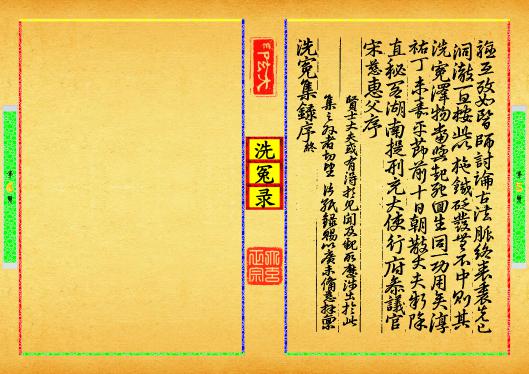 證互攷如醫師討論古法脈絡表裏先已
洞澈一旦按此以施鍼砭發無不中則其
洗冤澤物當與起死回生同一功用矣淳
祐丁未嘉平節前十日朝散大夫新除
直秘閣湖南提刑充大使行府參議官
宋慈惠父序
賢士大夫或有得於見聞及親所歷涉出於此
集之外者切望片紙錄賜以廣未備慈拜稟
洗冤集錄序終
洗
冤
录